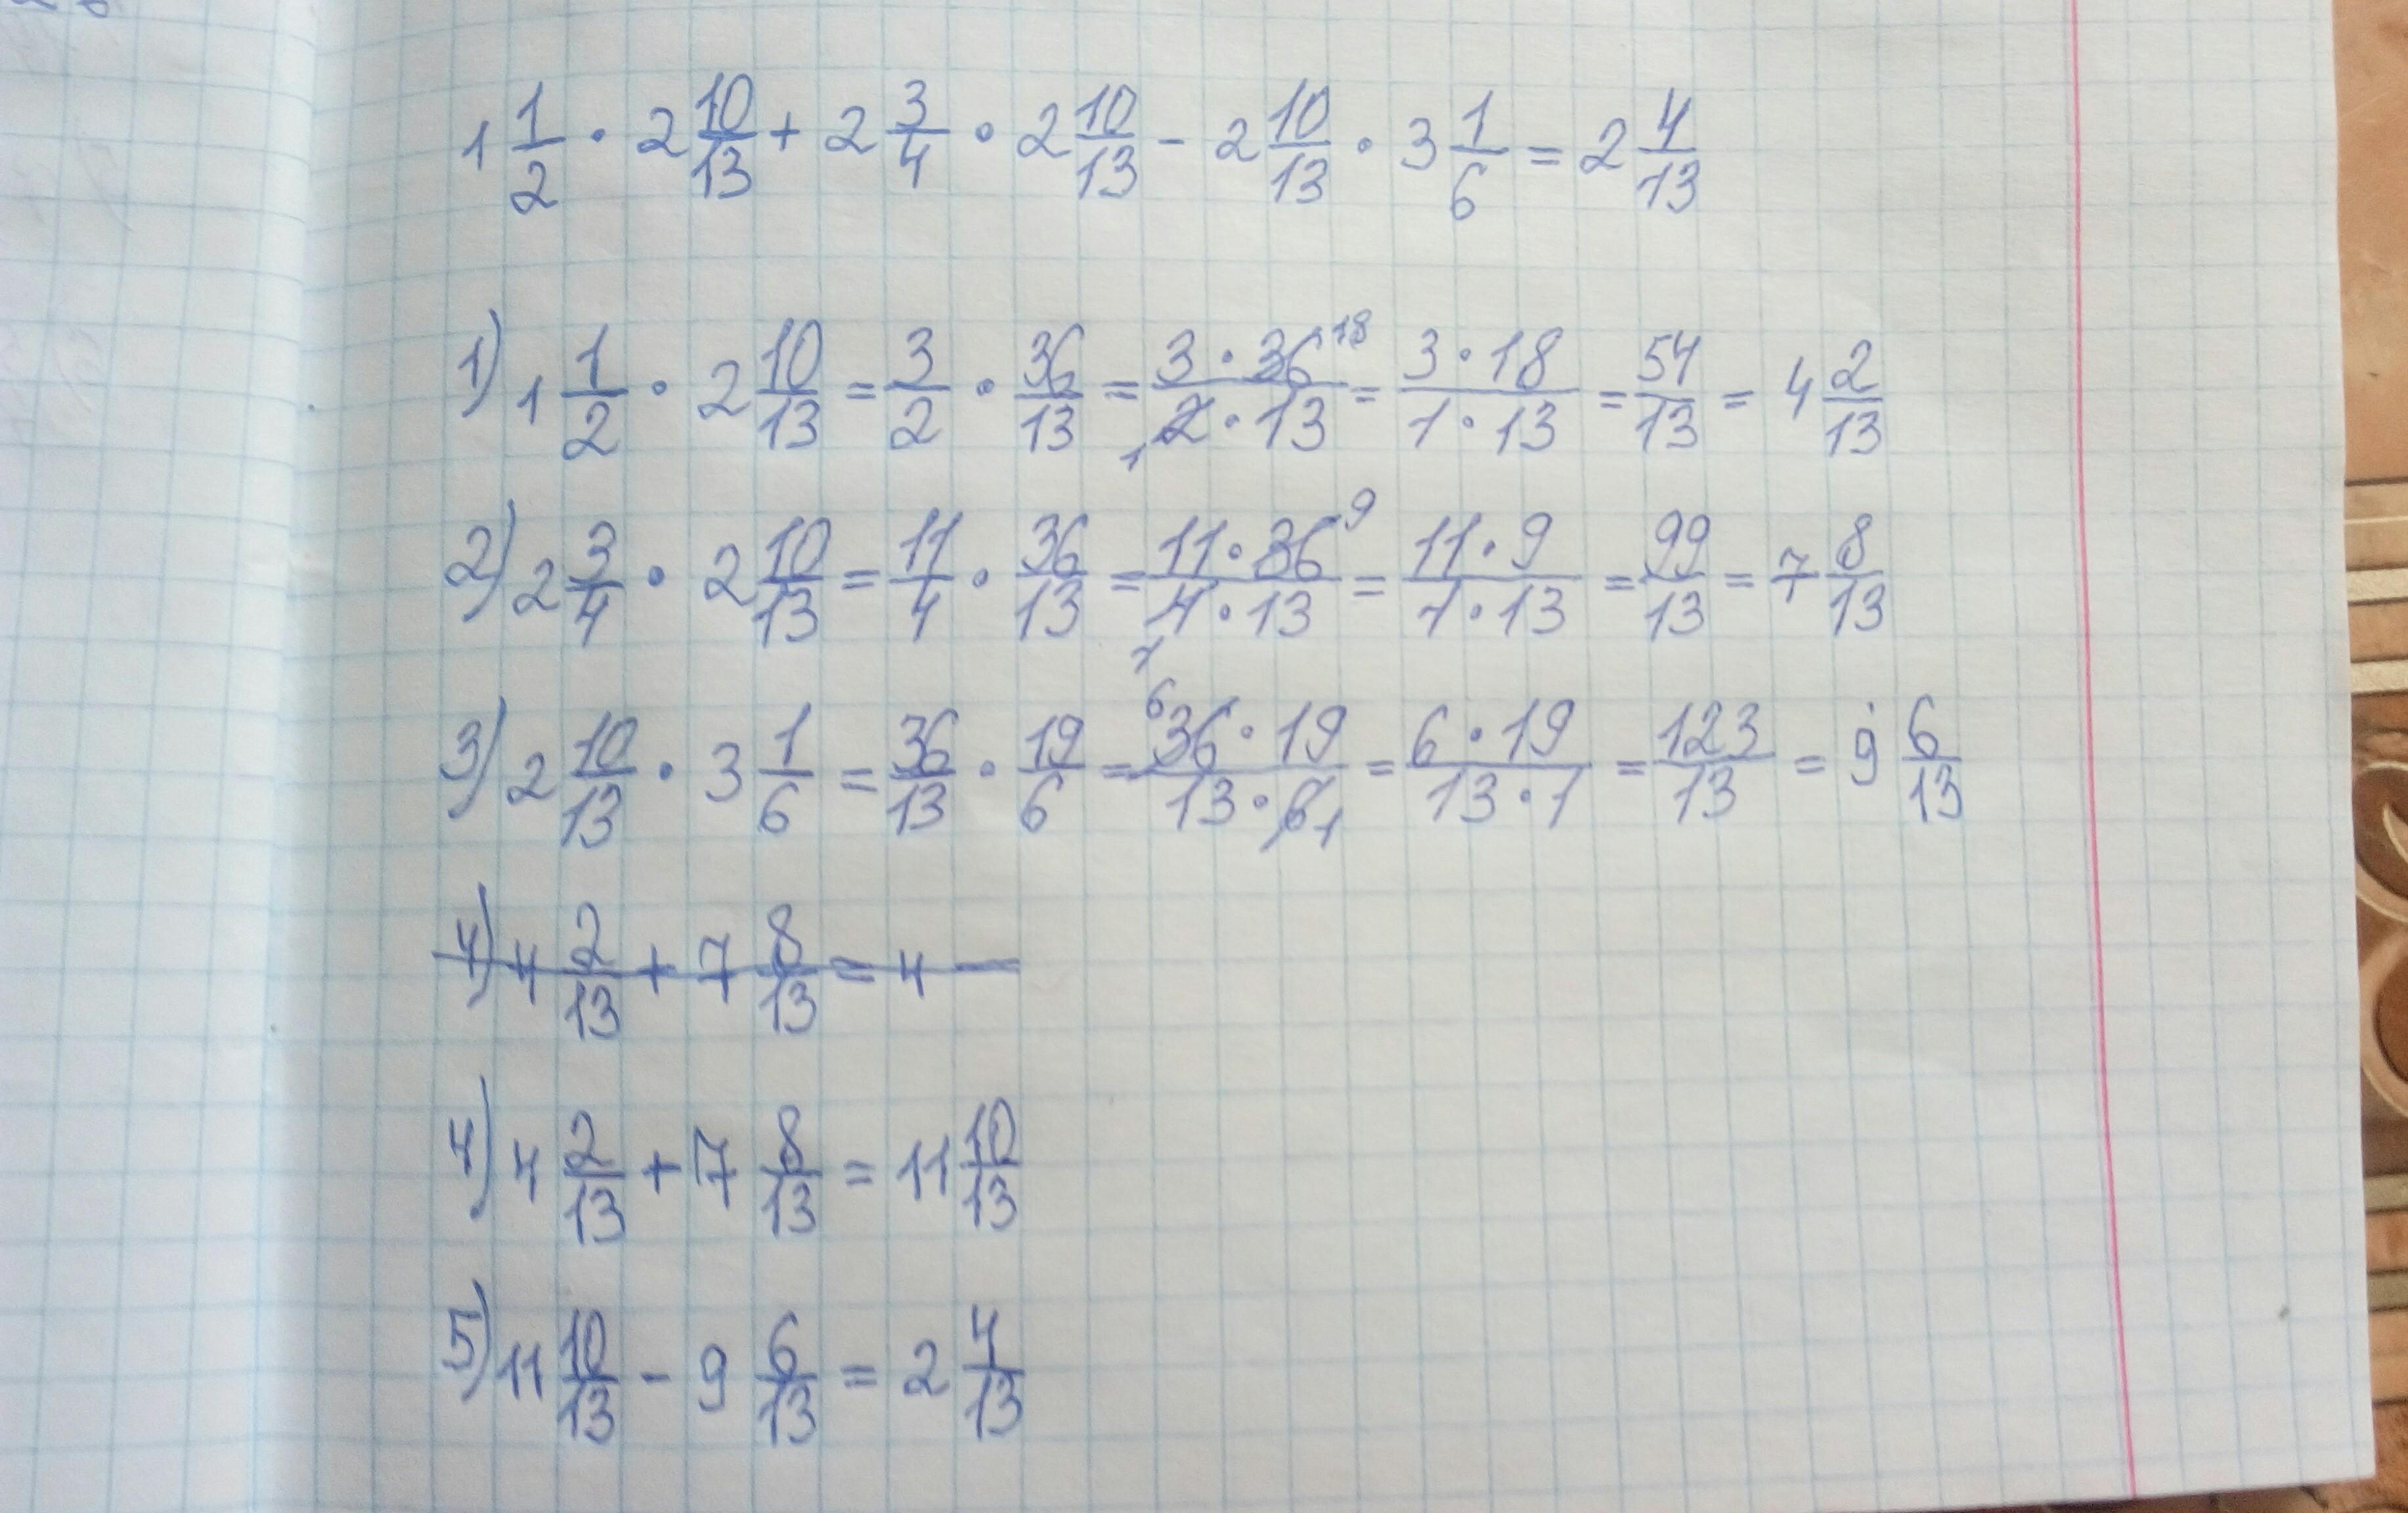 1 1/2 · 2 10/13 + 2 3/4 · 2 10/13 - 2 10/13 · 3 1/6 = 2 4/13
1) 1 1/2 · 2 10/13 = 3/2 · 36/13 = 3 · 36 18/1 2 · 13 = 3 · 18/1 · 13 = 54/13 = 4 2/13
2) 2 3/4 · 2 10/13 = 11/4 · 36/13 = 11 · 36 9/1 4 · 13 = 11 · 9/1 · 13 = 99/13 = 7 8/13
3) 2 10/13 · 3 1/6 = 36/13 · 19/6 = 6 36 · 19/13 · 6 1 = 6 · 19/13 · 1 = 123/13 = 9 6/13
4) 4 2/13 + 7 8/13 = 4 —
4) 4 2/13 + 7 8/13 = 11 10/13
5) 11 10/13 - 9 6/13 = 2 4/13